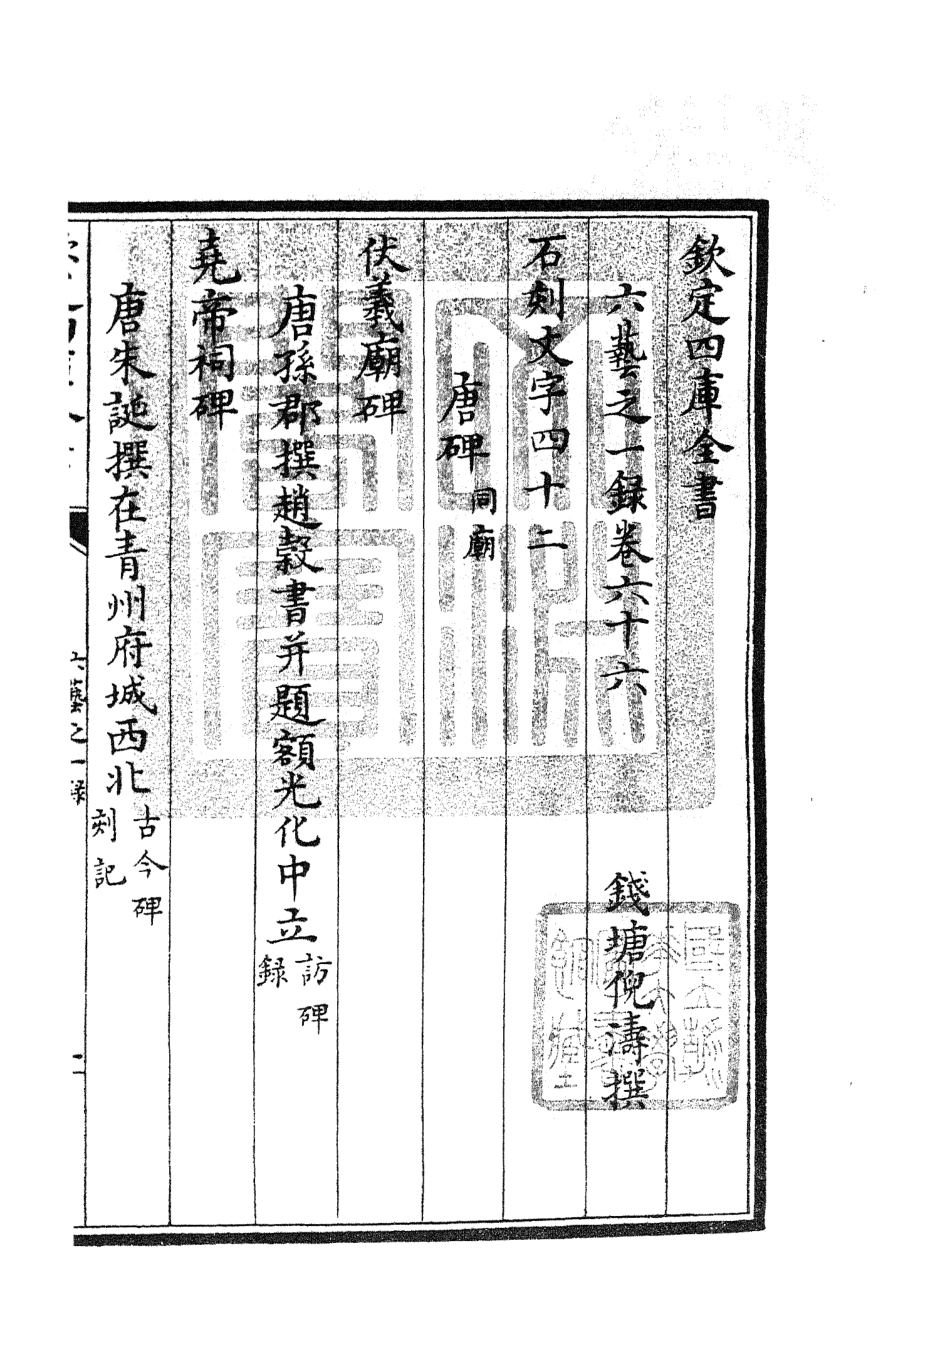 欽定四庫全書
六藝之一録卷六十六
錢塘倪濤撰
石刻文字四十二
唐碑 祠廟
伏羲廟碑
唐孫郡撰趙縠書并題額光化中立 訪碑録
堯帝祠碑
唐朱誕撰在青州府城西北 古今碑刻記
六藝之一録